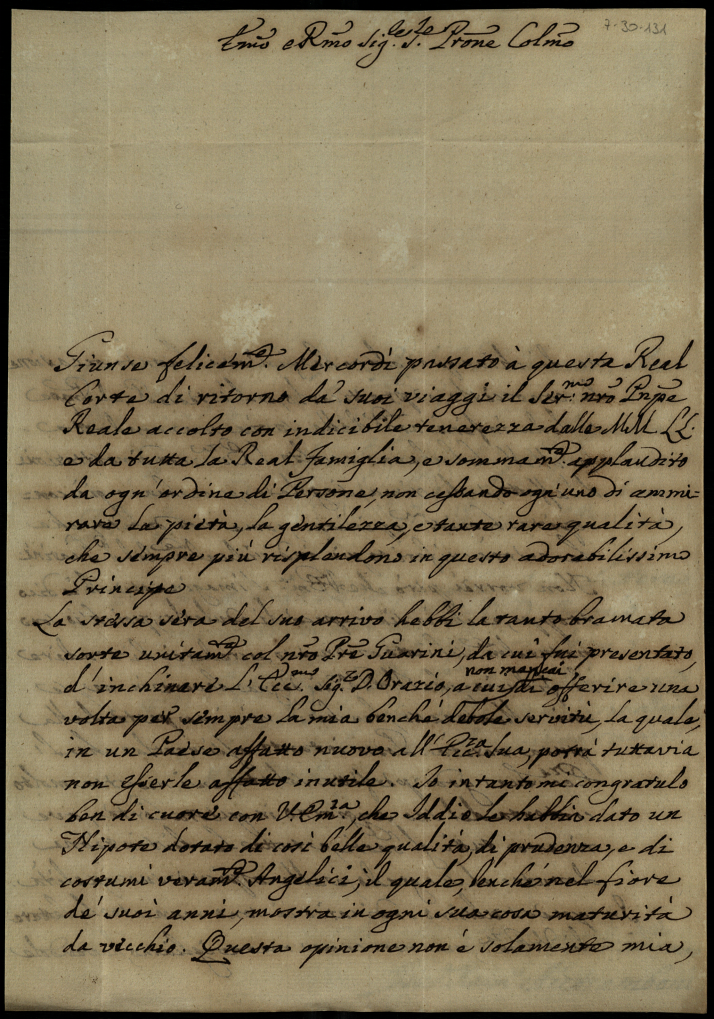 7-30-131
Emo e Rmo Sig.re Sig.re Prone Colmo
Giunse felicem.te Mercordì passato à questa Real
Corte di ritorno da' suoi viaggi il Ser.mo nro Pnpe
Reale accolto con indicibile tenerezza dalle MM. LL.
e da tutta la Real Famiglia, e sommam.te applaudito
da ogn'ordine di Persone, non cessando ogn'uno di ammi-
rare la pietà, la gentilezza, e tante rare qualità,
che sempre più risplendono in questo adorabilissimo
Principe
La stessa sera del suo arrivo hebbi la tanto bramata
sorte unitam.te col nro Pre Guarini, da cui fui presentato,
d'inchinare l'Ecc.mo Sig.r D. Orazio, a cui non mancai di offerire una
volta per sempre la mia benché debole servitù, la quale,
in un Paese affatto nuovo all'Ecc.za Sua, potrà tuttavia
non esserle affatto inutile. Io intanto mi congratulo
ben di cuore con V. Em.za, che Iddio le habbia dato un
Nipote dotato di così belle qualità, di prudenza, e di
costumi veram.te Angelici, il quale, benché nel fiore
de' suoi anni, mostra in ogni sua cosa maturità
da vecchio. Questa opinione non è solamente mia,